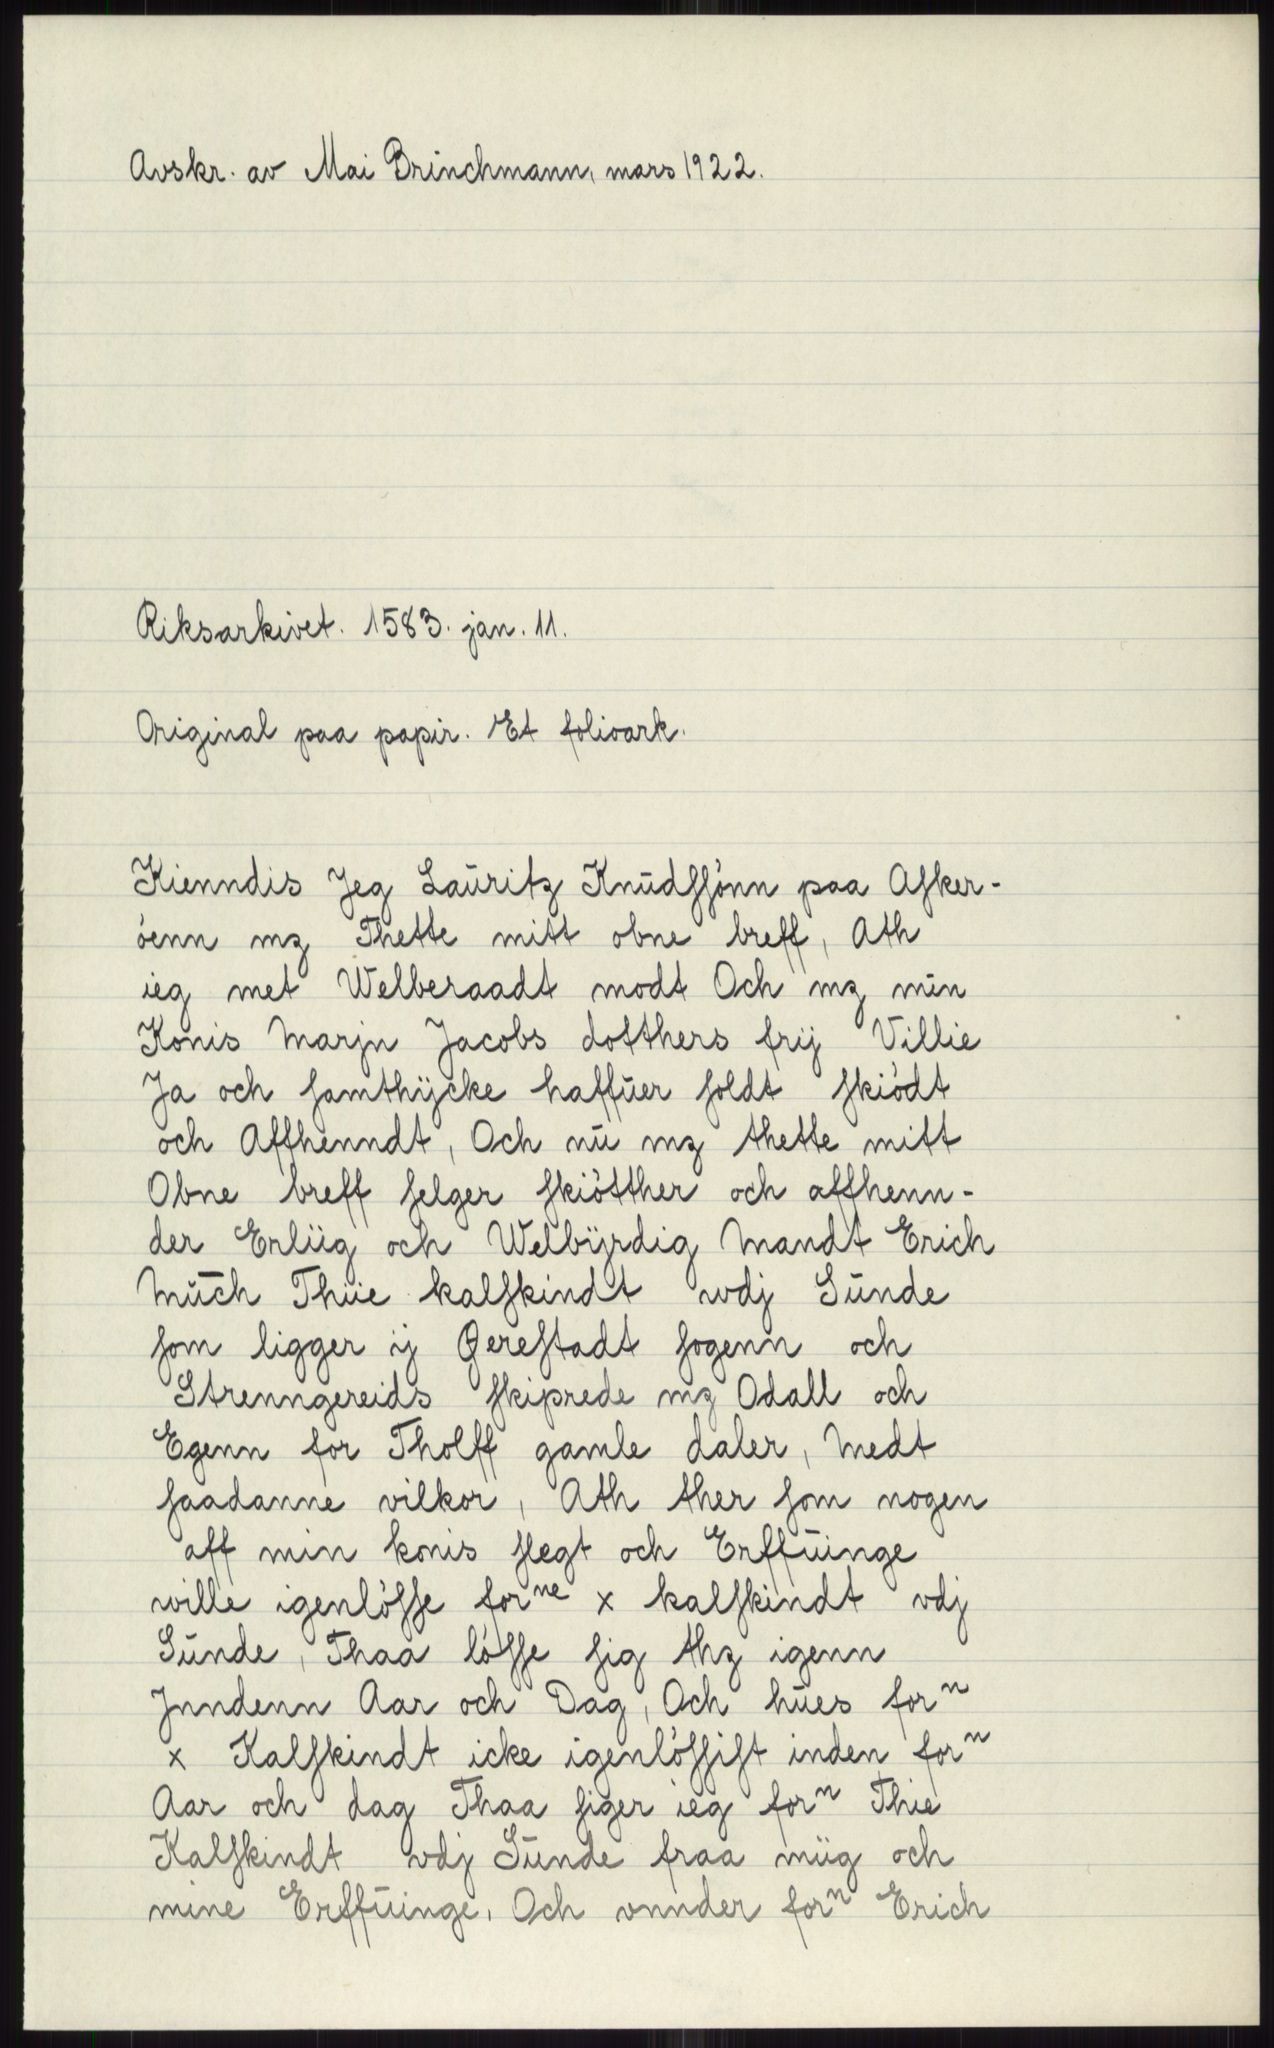 Avskr. av Mai Brinchmann, mars 1922.
Riksarkivet. 1583. jan. 11.
Original paa papir. Et folioark.
Kienndis Jeg Laūritz Knūdſſónn paa Aſker-
óenn mꝫ Thette mitt obne breff, Ath
ieg met Welberaadt modt Och mꝫ min
Konis Marjn Jacobs dotthers frij Villie
Ja och ſamthÿcke haffūer ſoldt ſkiódt
och Affhenndt, Och nū mꝫ thette mitt
Obne breff ſelger ſkiótther och affhenn-
der Erliig och Welbÿrdig Mandt Erich
Mūch Thiie kalfſkindt vdj Sūnde
ſom ligger ij Gereſtadt ſogenn och
Strenngereids ſkiprede mꝫ Odall och
Egenn for Tholff gamle daler, Medt
ſaadanne vilkor, Ath ther ſom nogen
aff min konis ſlegt och Erffūinge
wille igenlóſſe forⁿᵉ x kalfſkindt vdj
Sūnde, Thaa lóſſe ſig thꝫ igenn
Jnndenn Aar och Dag, Och hūes forⁿ
x Kalfſkindt icke igenlóſſiſt inden forⁿ
Aar och dag Thaa ſiger ieg forⁿ Thie
Kalfſkindt vdj Sūnde fraa miig och
mine Erffūinge, Och vnnder forⁿ Erich